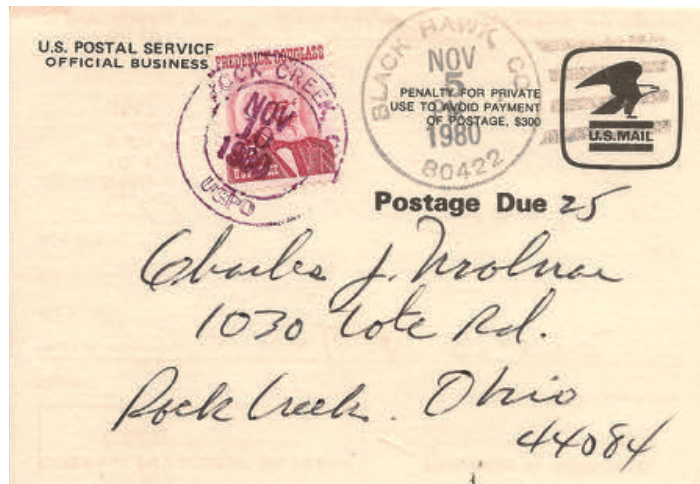 U.S. POSTAL SERVICE
OFFICIAL BUSINESS
FREDERICK DOUGLASS
ROCK CREEK,
NOV
10
1980
USPO
BLACK HAWK, CO
NOV
5
1980
80422
PENALTY FOR PRIVATE
USE TO AVOID PAYMENT
OF POSTAGE, $300
U.S.MAIL
Postage Due 25
Charles J. Molnar
1030 Tote Rd.
Rock Creek. Ohio
44084